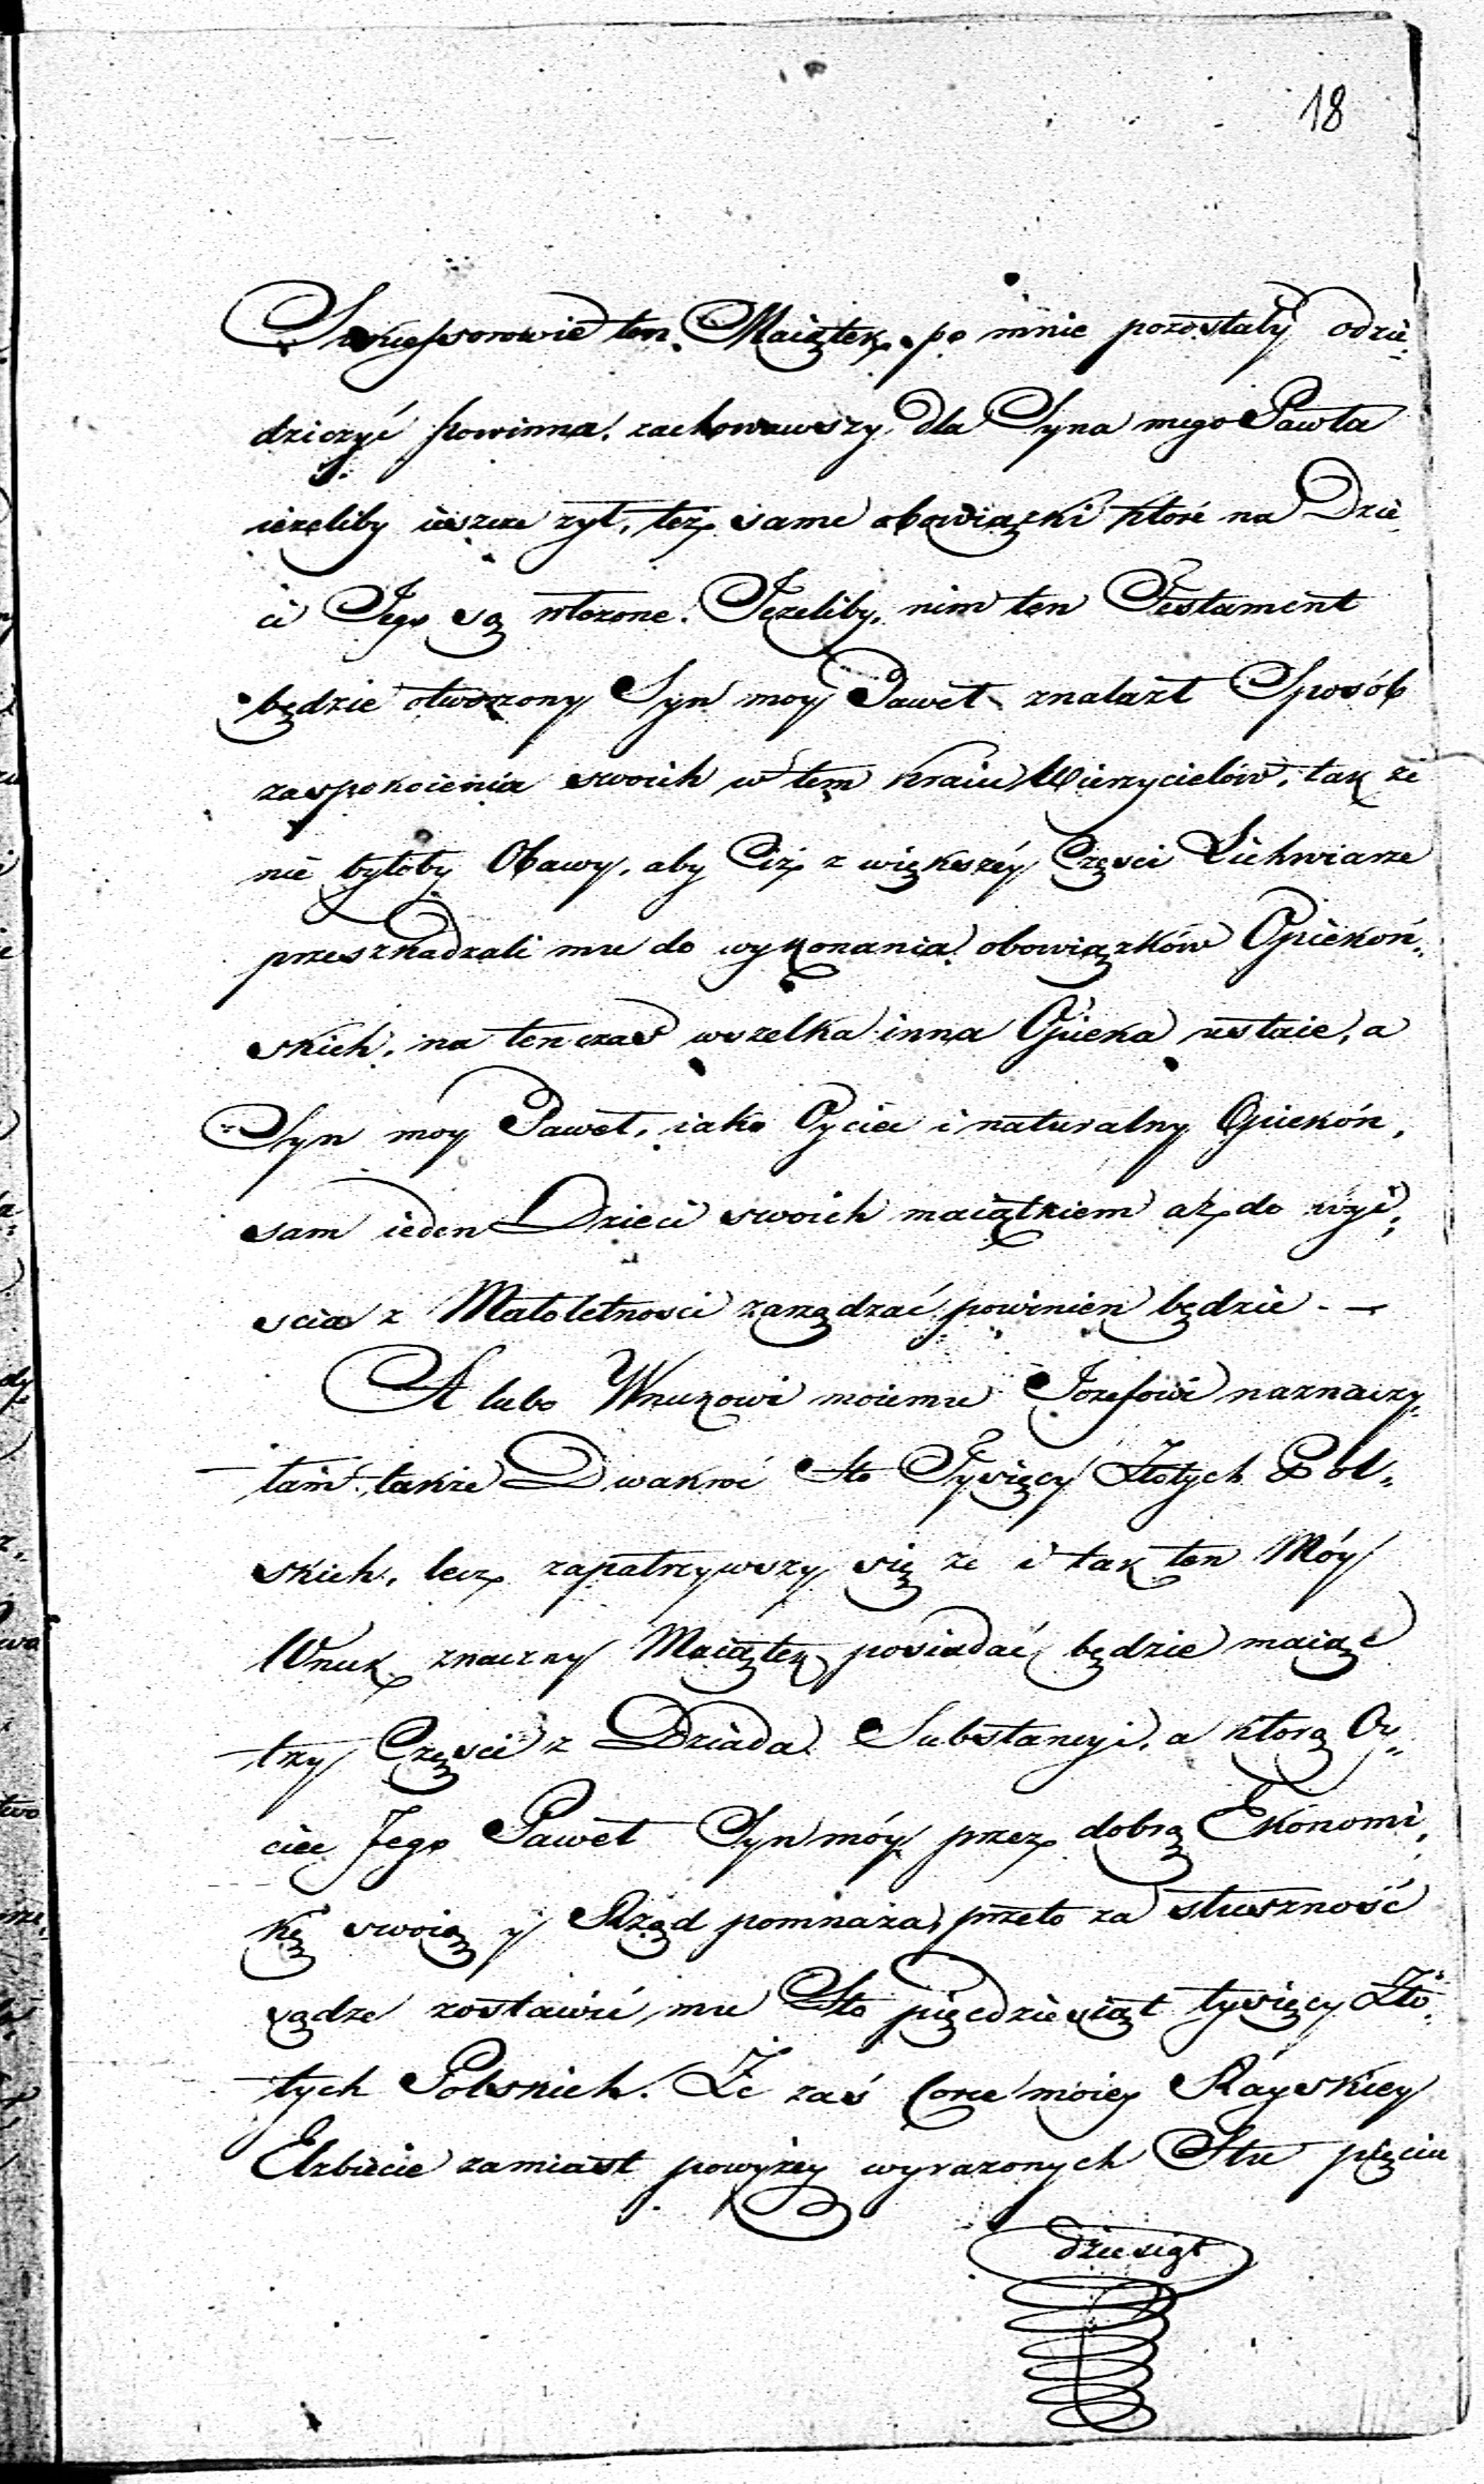 18
Sukcessorowie ten Maiątek po mnie pozostały odzie„
dziczyć powinna, zachowawszy dla Syna mego Pawła
ieżeliby ieszcze żył, też same obowiązki które na Dzie„
ci Jego są włożone. Jeżeliby, nim ten Testament
będzie otworzony Syn moy Paweł znalazł Sposób
zaspokoienia swoich w tem kraiu Wierzycielów, tak że
nie byłoby Obawy, aby Ciż z większéy Części Lichwiarze
przeszkadzali mu do wykonania obowiązków Opiekoń„
skich, na ten czas wszelka inna Opieka ustaie, a
Syn moy Paweł, iako Oyciec i naturalny Opiekón,
sam ieden Dzieci swoich maiątkiem aż do wyi„
scia z Małoletnosci zarządzać powinien będzie. —
A lubo Wnukowi moiemu Jozefowi naznaczy„
łam także Dwakroć Sto Tysięcy Złotych Pol„
skich, lecz zapatrzywszy się że i tak ten Móy
Wnuk znaczny Maiątek posiadać będzie maiąc
trzy Części z Dziada Substancyi, a którą Oy„
ciec Jego Paweł Syn móy przez dobrą Ekonomi„
kę swoią y Rząd pomnaża, przeto za słuszność
sądze zostawić mu Sto pięcdziesiąt tysięcy Zło„
tych Polskich. Że zaś Corce moiey Rayskiey
Elzbiecie zamiast powyżey wyrazonych Stu pięciu
dziesiąt